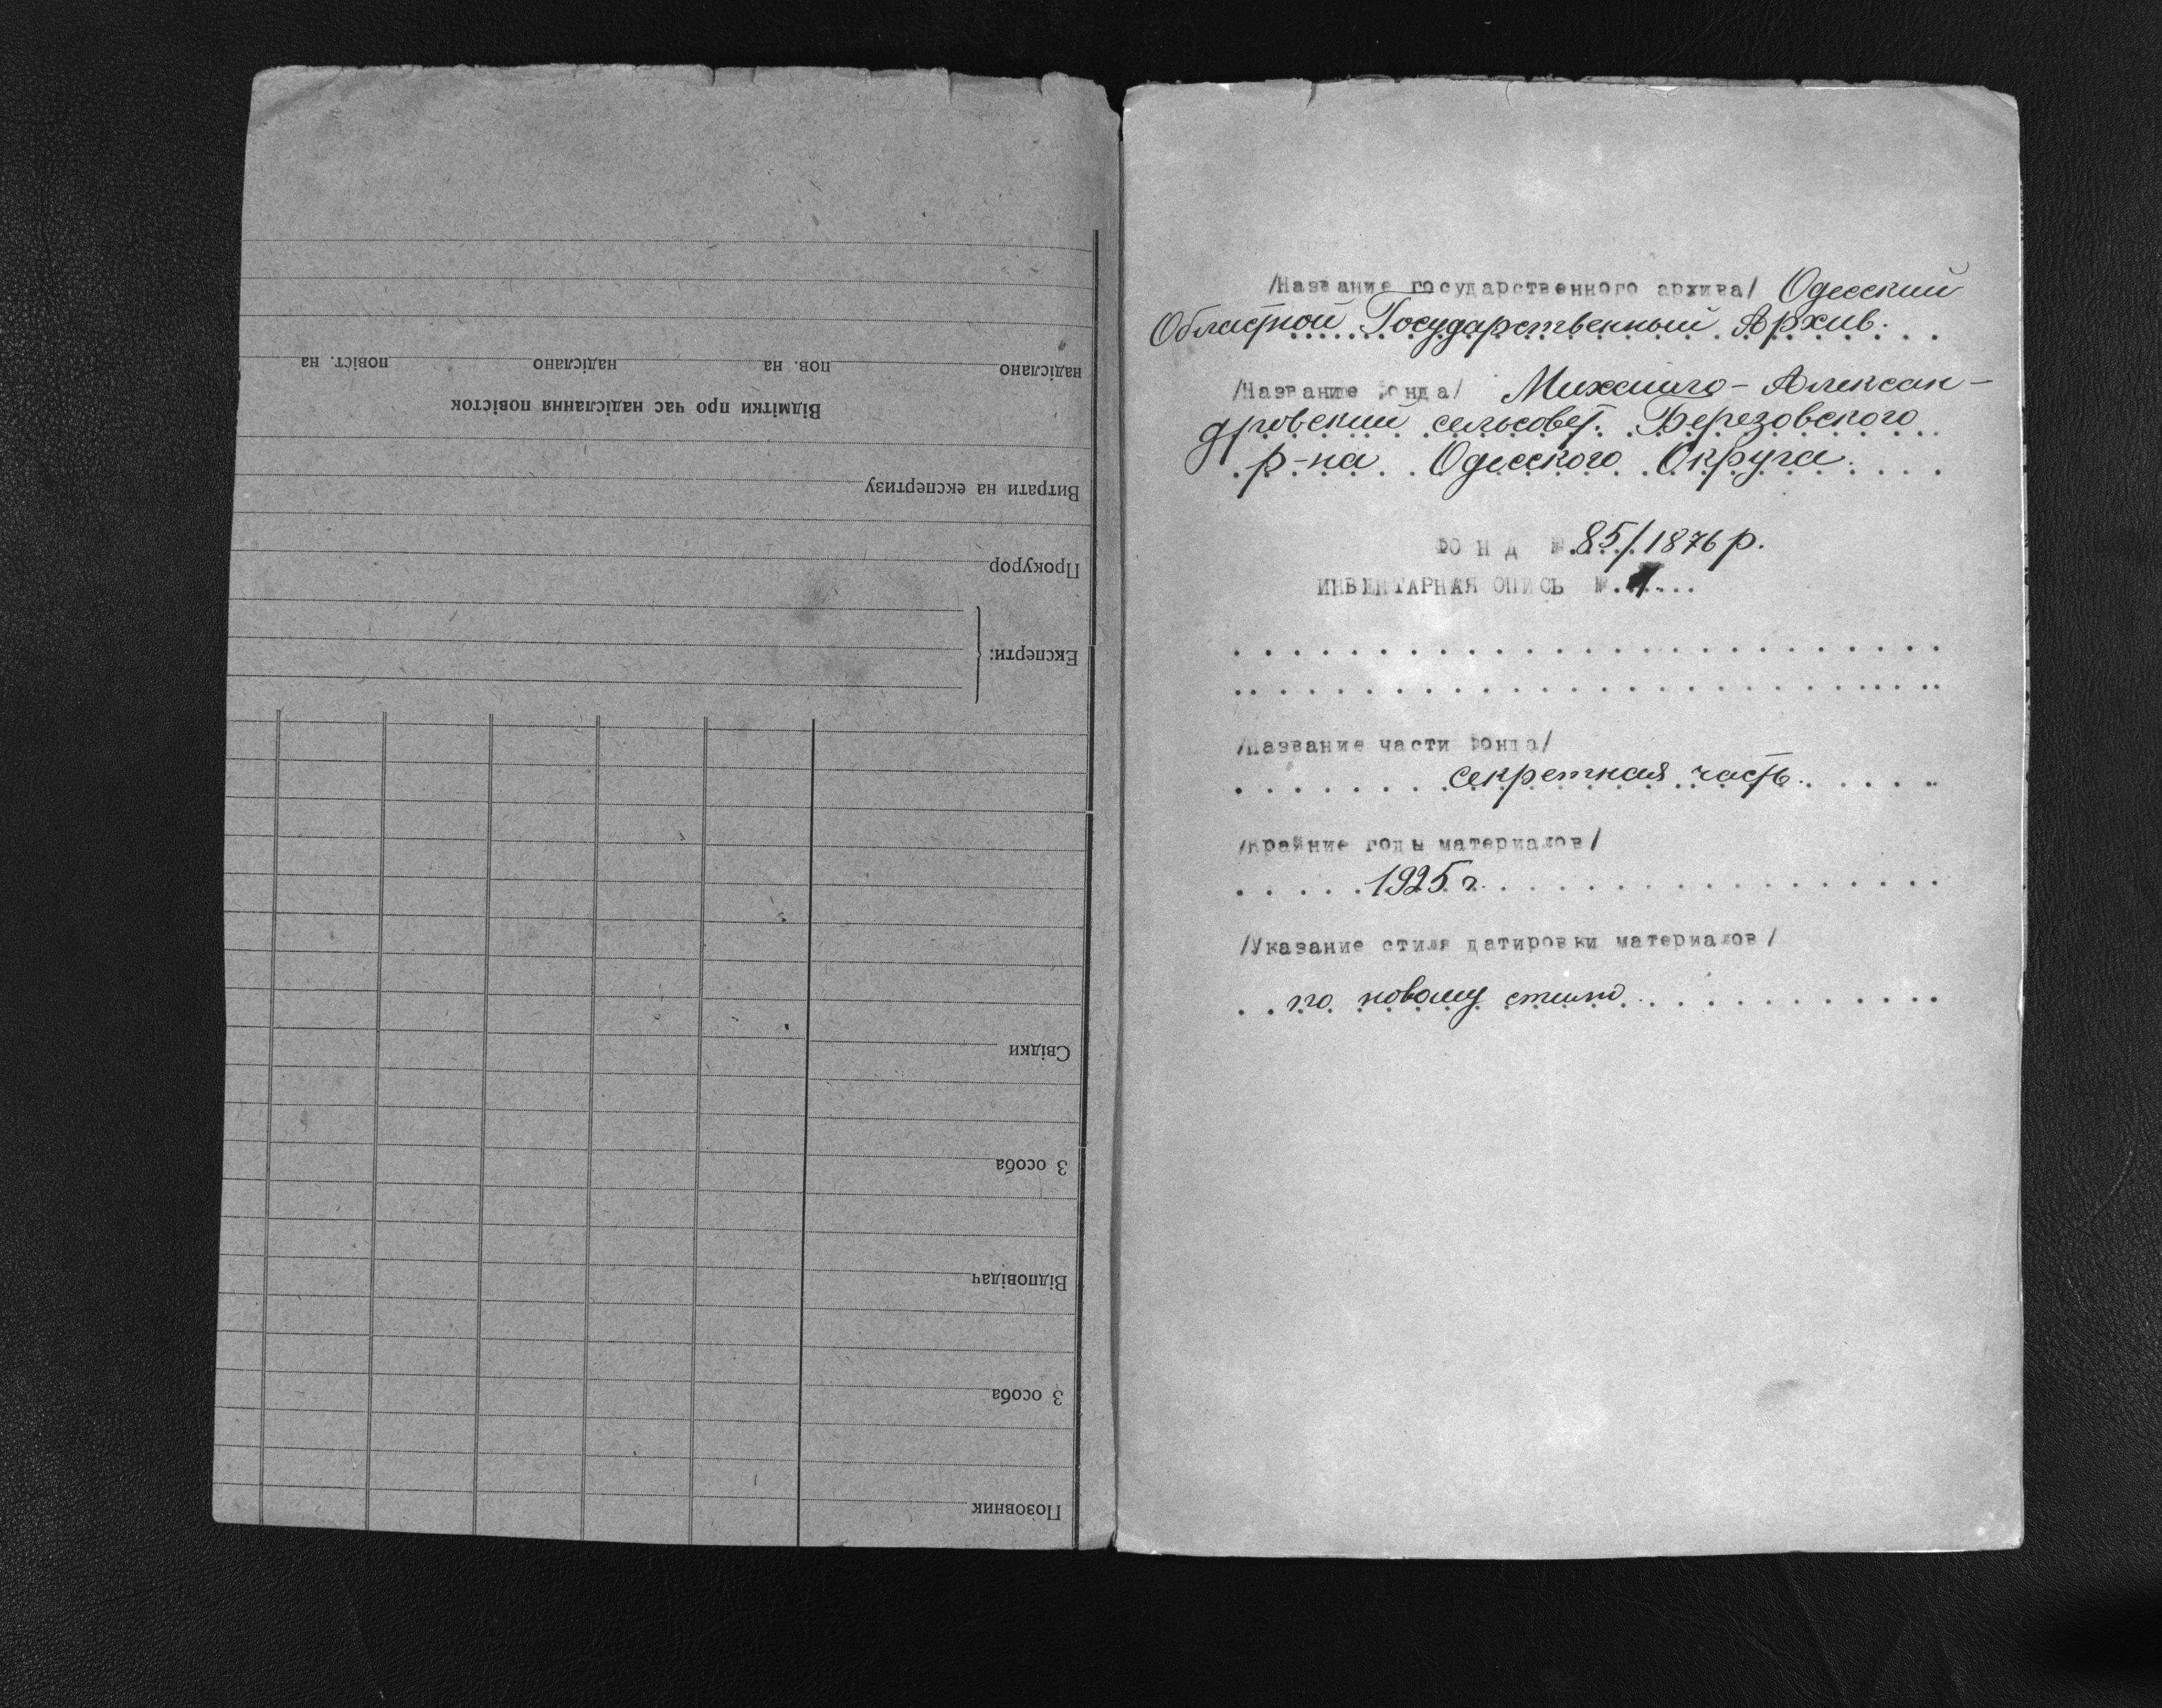 Позовник
3 особа
Відповідач
3 особа
Свідки
Експерти:
Прокурор
Витрати на експертизу
Відмітки про час надіслання повісток
надіслано пов. на надіслано повіст. на
/Название государственного архива/ Одесский
Областной Государственный Архив.
/Название фонда/ Михайло-Алексан-
дровский сельсовет. Березовского
р-на Одесского Округа.
ФОНД № 85/1876 р.
ИНВЕНТАРНАЯ ОПИСЬ № 1
/Название части фонда/
секретная часть.
/Крайние годы материалов/
1925 г.
/Указание стиля датировки материалов/
по новому стилю